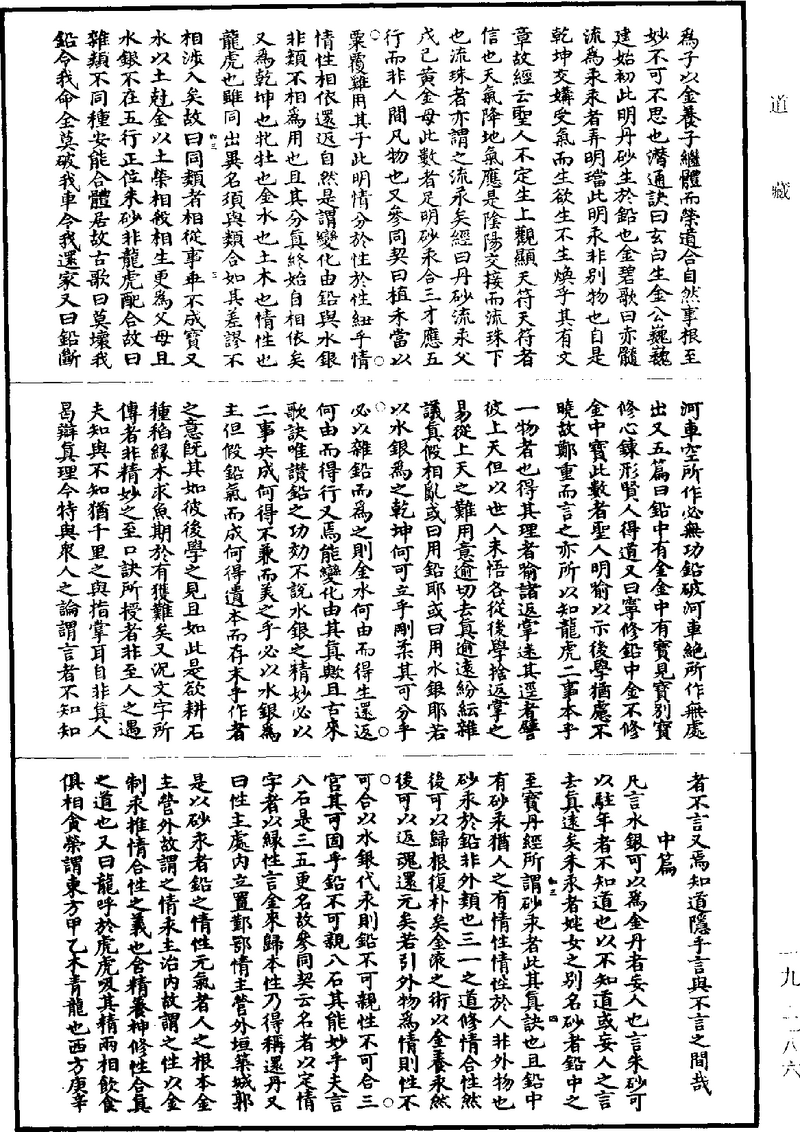 道藏
一九－二八六
爲子以金養子繼體而榮道合自然事根至
妙不可不思也潛通訣曰玄白生金公巍巍
建始初此明丹砂生於鉛也金碧歌曰赤髓
流爲汞汞者弄明璫此明汞非別物也自是
乾坤交媾受氣而生欲生不生煥乎其有文
章故經云聖人不定生上觀顯天符天符者
信也天氣降地氣應是陰陽交接而流珠下
也流珠者亦謂之流汞矣經曰丹砂流汞父
戊己黃金母此數者足明砂汞合三才應五
行而非人間凡物也又參同契曰植禾當以
粟覆雞用其子此明情分於性於性紐乎情
情性相依還返自然是謂變化由鉛與水銀
非類不相爲用也且其分眞終始自相依矣
又爲乾坤也牝牡也金水也土木也情性也
龍虎也雖同出異名須與類合如其差謬不
相涉入矣故曰同類者相從事乖不成寶又
水以土尅金以土榮相殺相生更爲父母且
水銀不在五行正位朱砂非龍虎配合故曰
雜類不同種安能合體居故古歌曰莫壞我
鉛令我命全莫破我車令我還家又曰鉛斷
河車空所作必無功鉛破河車絕所作無處
出又五篇曰鉛中有金金中有寶見寶別寶
修心鍊形賢人得道又曰寧修鉛中金不修
金中寶此數者聖人明喻以示後學猶慮不
曉故鄭重而言之亦所以知龍虎二事本乎
一物者也得其理者喻諸返掌迷其逕者譬
彼上天但以世人未悟各從後學捨返掌之
易從上天之難用意逾切去眞逾遠紛紜雜
議眞假相亂或曰用鉛耶或曰用水銀耶若
以水銀爲之乾坤何可立乎剛柔其可分乎
必以雜鉛而爲之則金水何由而得生還返
何由而得行又焉能變化由其眞歟且古來
歌訣唯讚鉛之功効不說水銀之精妙必以
二事共成何得不兼而美之乎必以水銀爲
主但假鉛氣而成何得遺本而存末乎作者
之意旣其如彼後學之見且如此是欲耕石
種稻緣木求魚期於有獲難矣又況文字所
傳者非精妙之至口訣所授者非至人之遇
夫知與不知猶千里之與指掌耳自非眞人
曷辯眞理今特與衆人之論謂言者不知知
者不言又焉知道隱乎言與不言之間哉
中篇
凡言水銀可以爲金丹者妄人也言朱砂可
以駐年者不知道也以不知道或妄人之言
去眞遠矣朱汞者姹女之別名砂者鉛中之
至寶丹經所謂砂汞者此其眞訣也且鉛中
有砂汞猶人之有情性情性於人非外物也
砂汞於鉛非外類也三一之道修情合性然
後可以歸根復朴矣金液之術以金養汞然
後可以返魂還元矣若引外物爲情則性不
可合以水銀代汞則鉛不可親性不可合三
宮其可固乎鉛不可親八石其能妙乎夫言
八石是三五更名故參同契云名者以定情
字者以緣性言金來歸本性乃得稱還丹又
曰性主處內立置鄞鄂情主營外垣築城郭
是以砂汞者鉛之情性元氣者人之根本金
主營外故謂之情汞主治內故謂之性以金
制汞推情合性之義也含精養神修性合眞
之道也又曰龍呼於虎虎吸其精兩相飲食
俱相貪榮謂東方甲乙木青龍也西方庚辛